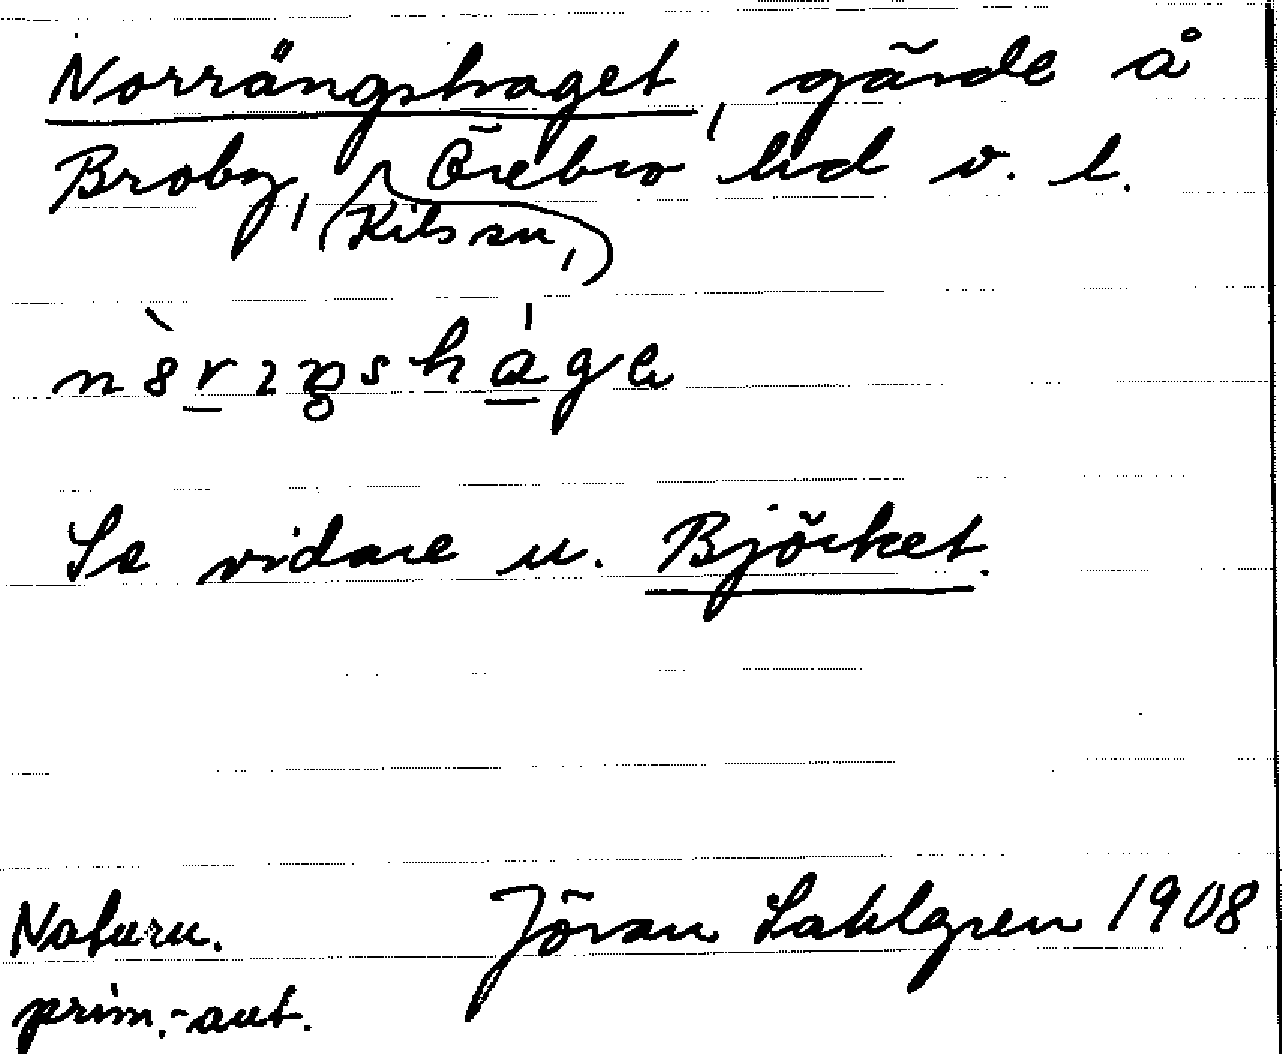 Norrängshaget, gärde å
Broby, Kils sn, Örebro lid v. l.
Se vidare u. Björket.
Naturn. Jöran Sahlgren 1908
prim.-aut.